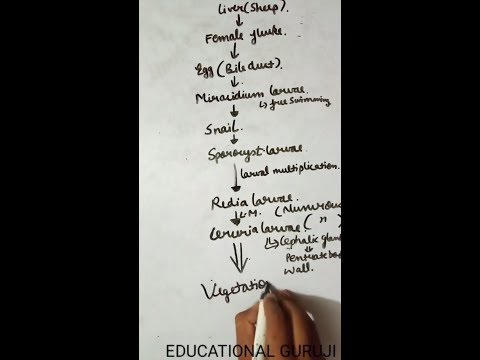 Liver(Sheep).
Female fluke
Egg (Bile duct).
Miracidium larvae
↳ free swimming
Snail.
Sporocyst larvae
larval multiplication.
Redia larvae.
L.M. (Numerous
Cercaria larvae ( " )
↳ Cephalic gland
Pentrate
wall.
Vegetation
EDUCATIONAL GURUJI